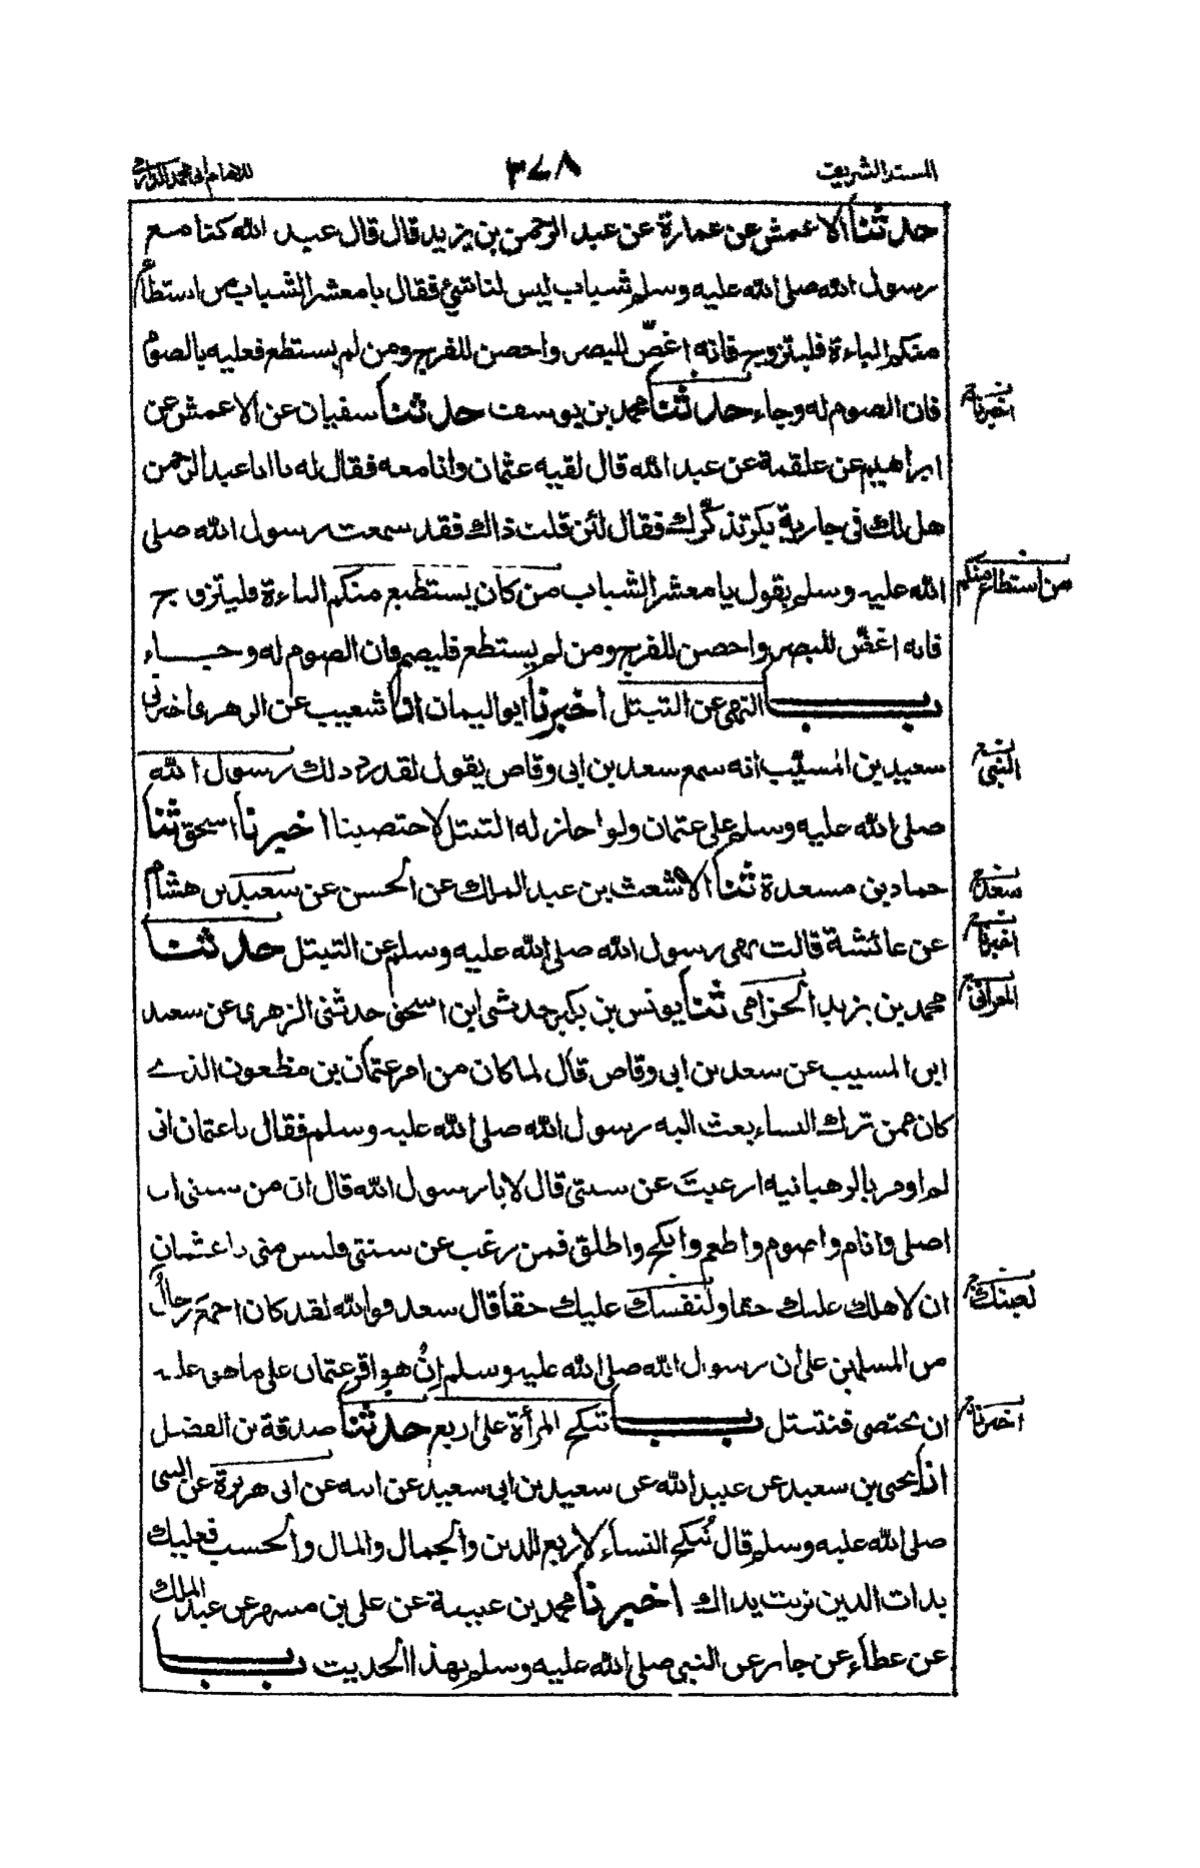 المسند الشريف ٣٧٨ للامام ابى محمد الدارمى
حدثنا الاعمش عن عمارة عن عبد الرحمن بن يزيد قال قال عبد الله كنا مع
رسول الله صلى الله عليه وسلم شباب ليس لنا شئ فقال يا معشر الشباب من استطاع
منكم الباءة فليتزوج فانه اغضّ للبصر واحصن للفرج ومن لم يستطع فعليه بالصوم
فان الصوم له وجاء حدثنا محمد بن يوسف حدثنا سفيان عن الاعمش عن
اخبرنا
ابراهيم عن علقمة عن عبد الله قال لقيه عثمان وانا معه فقال له يا ابا عبد الرحمن
هل لك فى جارية بكر تذكّرك فقال لئن قلت ذاك فقد سمعت رسول الله صلى
الله عليه وسلم يقول يا معشر الشباب من كان يستطيع منكم الباءة فليتزوج
من استطاع منكم
فانه اغضّ للبصر واحصن للفرج ومن لم يستطع فليصم فان الصوم له وجاء
باب النهى عن التبتل اخبرنا ابو اليمان انا شعيب عن الزهرى اخبرنى
سعيد بن المسيّب انه سمع سعد بن ابى وقاص يقول لقد رد ذلك رسول الله
النبى
صلى الله عليه وسلم على عثمان ولو اجاز له التبتل لاختصينا اخبرنا اسحق ثنا
حماد بن مسعدة ثنا الاشعث بن عبد الملك عن الحسن عن سعيد بن هشام
سعد
عن عائشة قالت نهى رسول الله صلى الله عليه وسلم عن التبتل حدثنا
اخبرنا
محمد بن يزيد الحزامى ثنا يونس بن بكير حدثنى ابن اسحق حدثنى الزهرى عن سعيد
ابن المسيب عن سعد بن ابى وقاص قال لما كان من امر عثمان بن مظعون الذى
كان ممن ترك النساء بعث اليه رسول الله صلى الله عليه وسلم فقال يا عثمان انى
لم اومر بالرهبانيه ارغبتَ عن سنتى قال لا يا رسول الله قال ان من سنتى ان
اصلى وانام واصوم واطعم وانكح واطلق فمن رغب عن سنتى فليس منى يا عثمان
ان لاهلك عليك حقا ولنفسك عليك حقا قال سعد فوالله لقد كان اجمعَ رجالٌ
لعينك
من المسلمين على ان رسول الله صلى الله عليه وسلم اِنْ هو اقر عثمان على ما هو عليه
ان نختصى فنتبتل باب تنكح المرأة على اربع حدثنا صدقة بن الفضل
اخبرنا
انا يحى بن سعيد عن عبيد الله عن سعيد بن ابى سعيد عن ابيه عن ابى هريرة عن النبى
صلى الله عليه وسلم قال تُنكح النساء لاربع للدين والجمال والمال والحسب فعليك
بذات الدين تربت يداك اخبرنا محمد بن عيينة عن على بن مسهر عن عبد الملك
عن عطاء عن جابر عن النبى صلى الله عليه وسلم بهذا الحديث باب